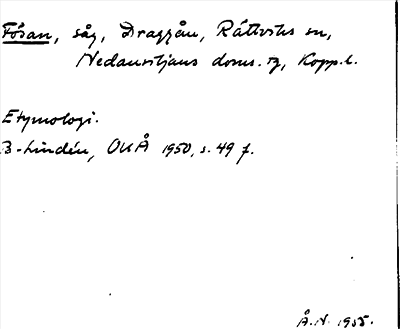 Fösan, såg, Draggån, Rättviks sn,
Nedansiljans doms. tg, Kopp. l.
Etymologi.
B. Lindén, OUÅ 1950, s. 49 f.
Å. N. 1955.